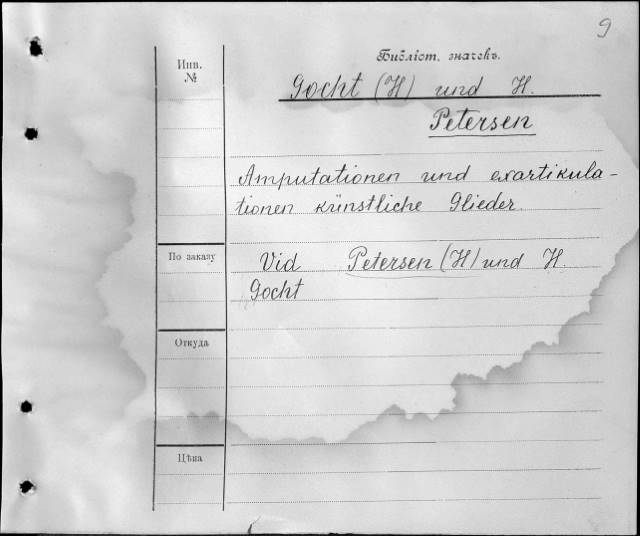 9
Библіот. значекъ.
Инв.
№
Gocht (H) und H.
Petersen
Amputationen und exartikula-
tionen künstliche Glieder.
По заказу
Vid Petersen (H) und H.
Gocht
Откуда
Цѣна